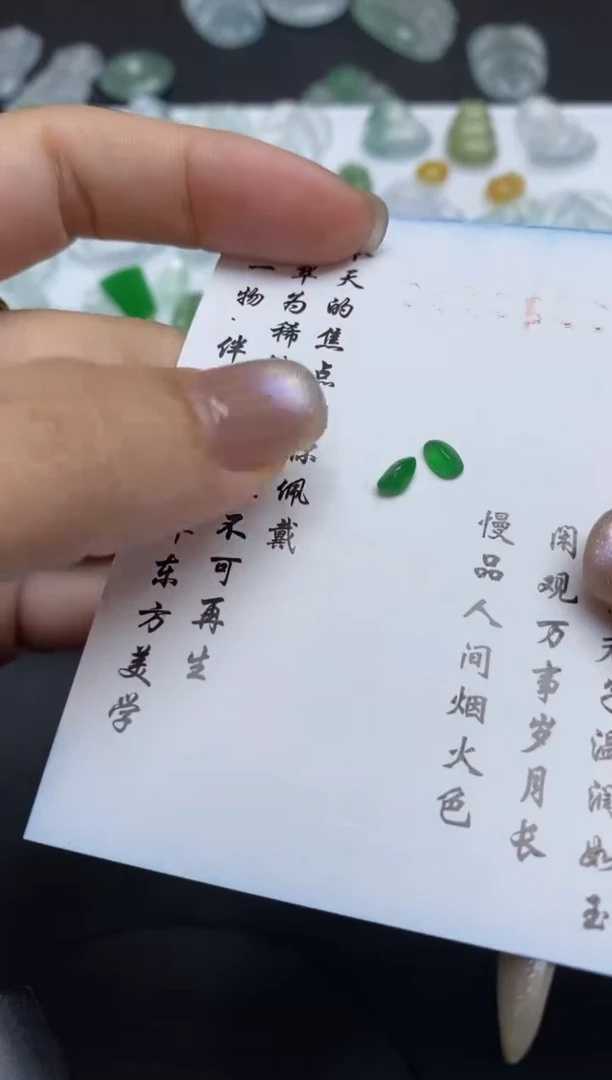 温润如玉
闲观万事岁月长
慢品人间烟火色
天的焦点 佩戴
为稀 不可再生
一物·伴 东方美学